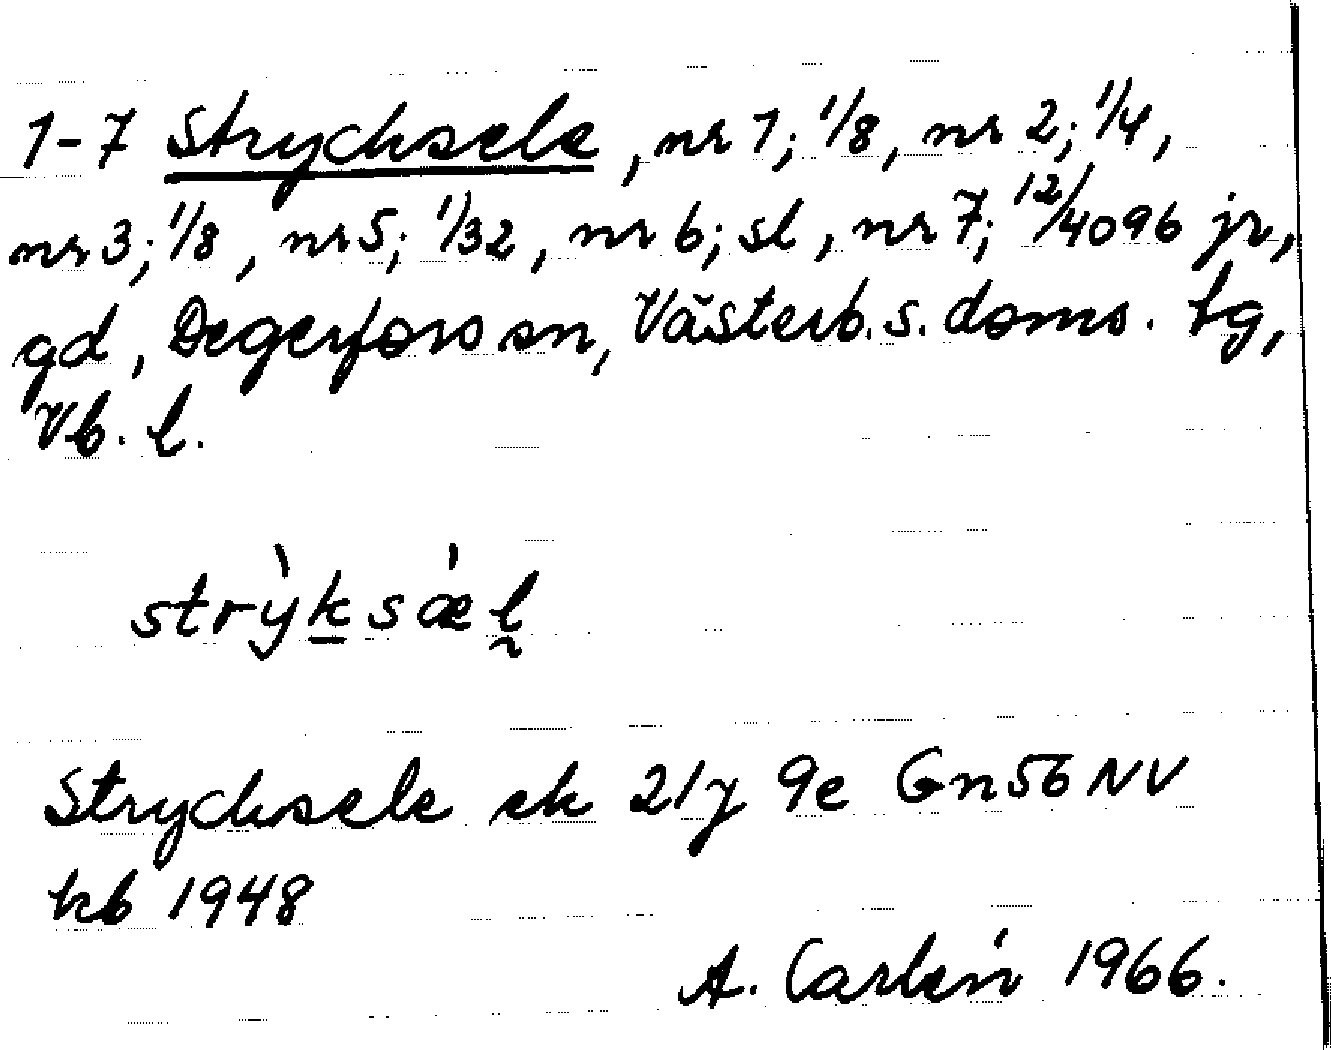 1-7 Strycksele, nr 1; 1/8, nr 2; 1/4,
nr 3; 1/8, nr 5; 1/32, nr 6; sl, nr 7; 12/4096 jr,
gd, Degerfors sn, Västerb. s. doms. tg,
Vb. l.
strỳksǽl
Strycksele ek 21J 9e Gn56 NV
kb 1948
A. Carlén 1966.